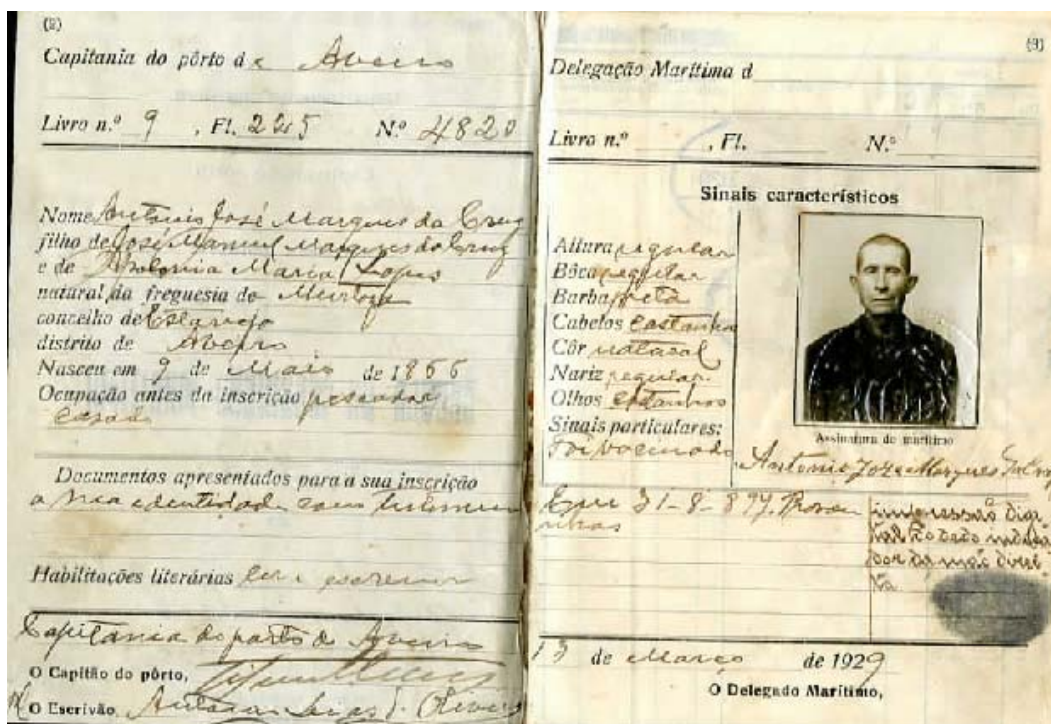 (2)
Capitania do pôrto de Aveiro
Livro n.º 9 , Fl. 225 N.º 4820
Nome António José Marques da Cruz
filho de José Manuel Marques da Cruz
e de Apolonia Maria Lopes
natural da freguesia de Murtosa
concelho de Estarreja
distrito de Aveiro
Nasceu em 9 de Maio de 1866
Ocupação antes da inscrição pescador
casado
Documentos apresentados para a sua inscrição
a sua identidade com testemu
Habilitações literárias ler e escrever
Capitania do porto de Aveiro
O Capitão do pôrto,
O Escrivão,
(3)
Delegação Marítima d
Livro n.º , Fl. N.º
Sinais característicos
Altura regular
Bôca regular
Barba preta
Cabelos castanhos
Côr natural
Nariz regular
Olhos castanhos
Sinais particulares:
Foi vacinado
Assinatura do marítimo
Antonio Joze Marques da Cruz
Em 31-8-897. Provou
nhas
impressão digi-
tal do dedo indica-
dor da mão direi-
ta.
13 de Março de 1929
O Delegado Marítimo,